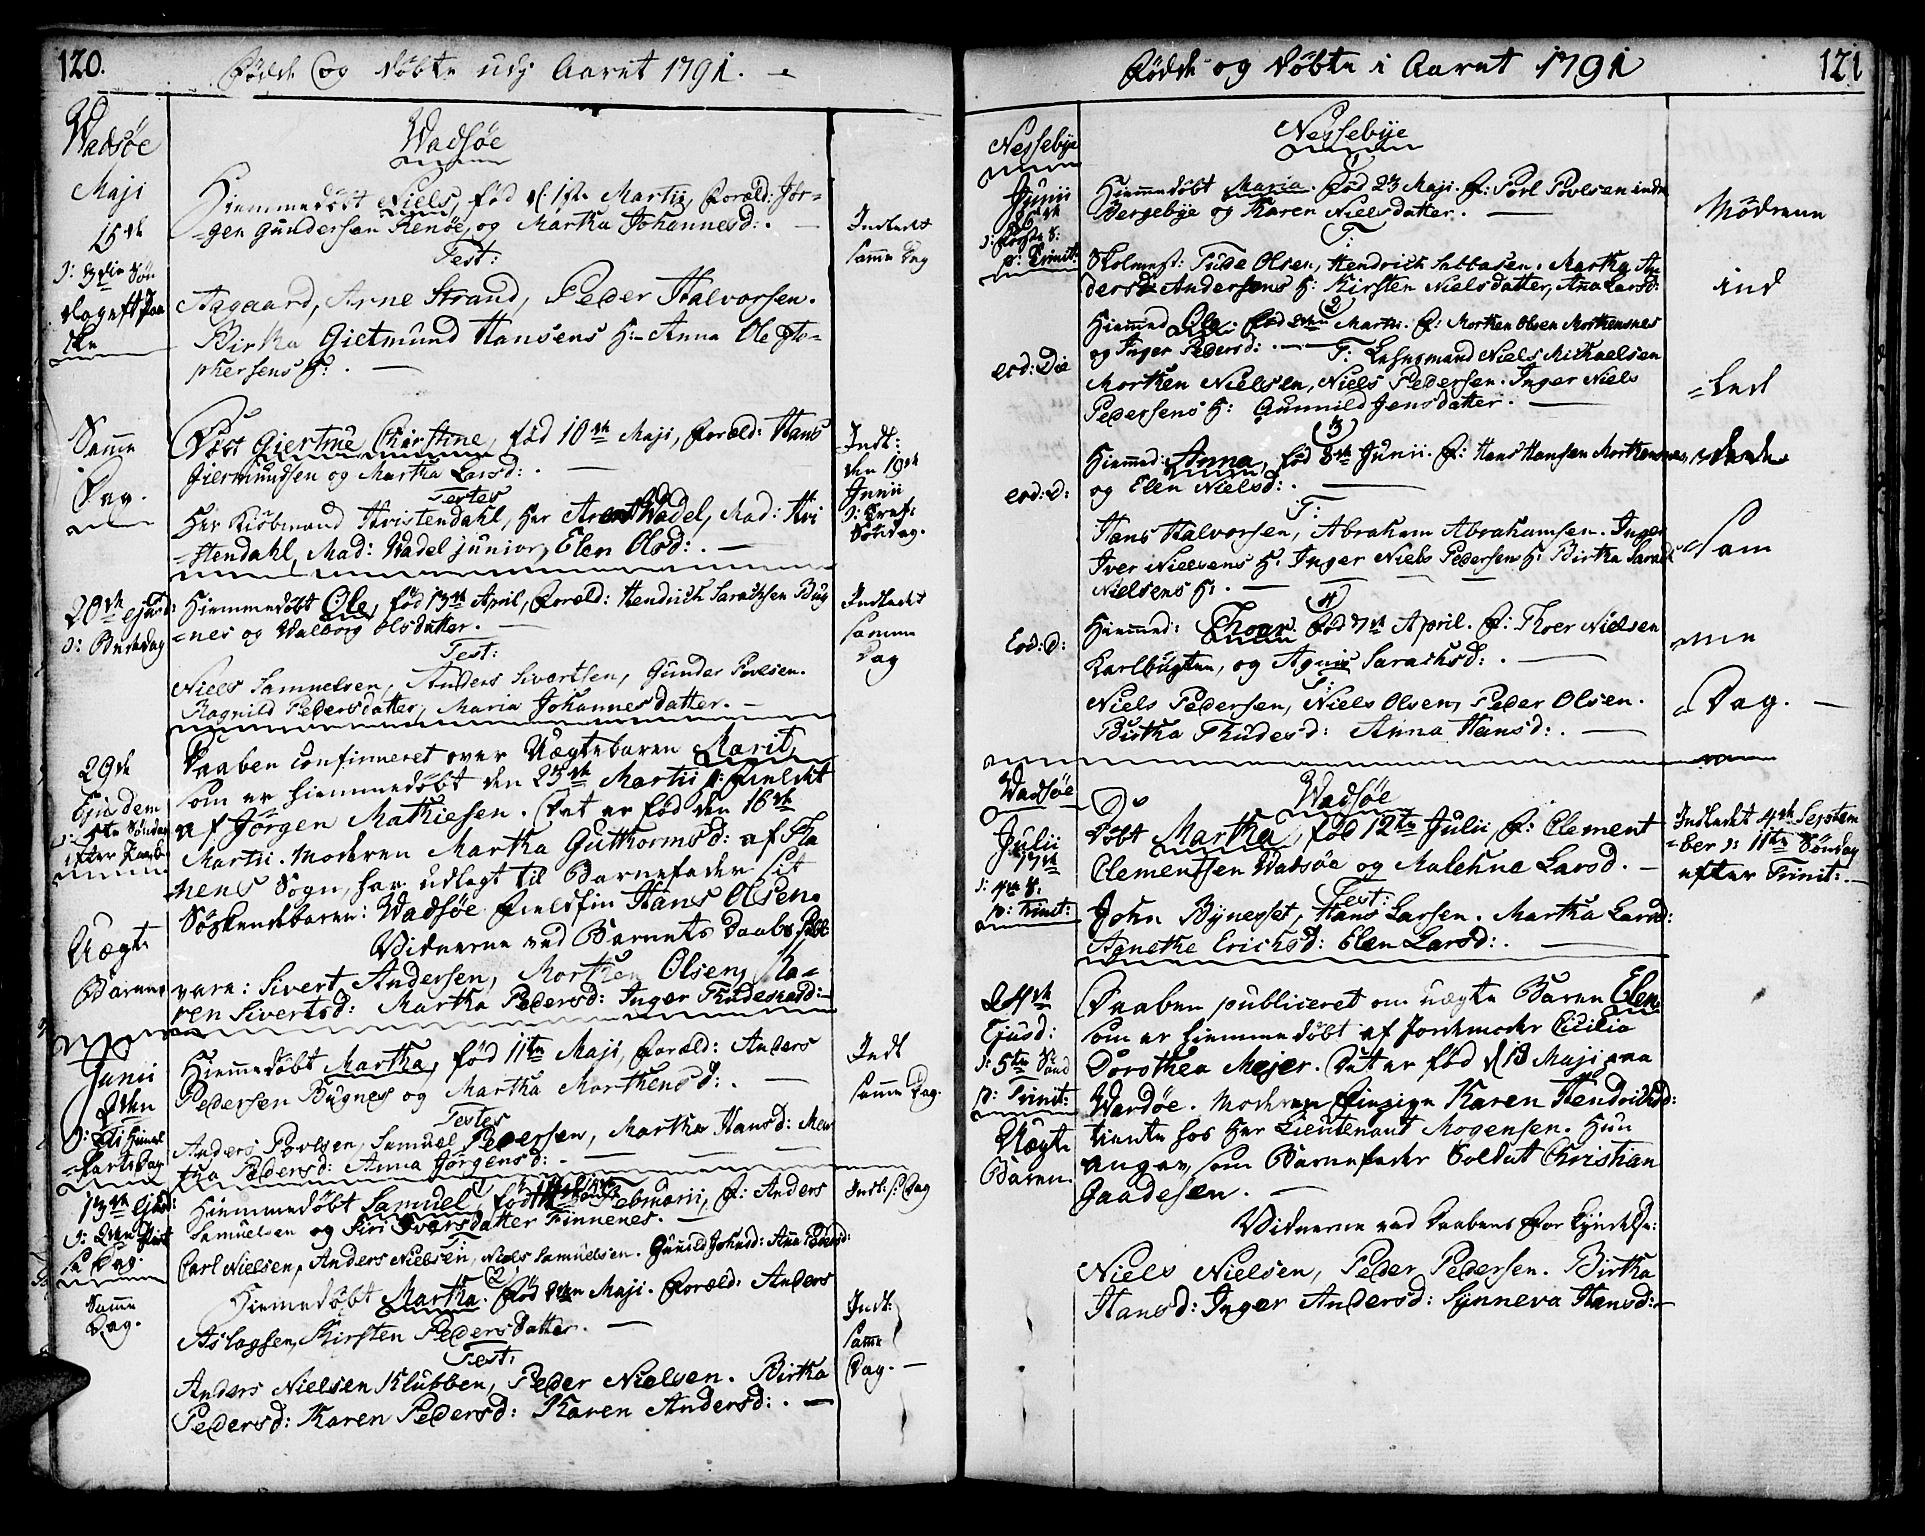 120.
Fødde og døbte udj Aaret 1791.
Wadsøe
Maji
15de
ɔ: 3die Søn
dag eft Paa
ske
Wadsøe
Hiemmedøbt Niels, fød d: 1ste Martii, Foræld: Jør-
gen Gundersen Renøe, og Martha Johannesd:.
Test:
Aagaard, Arne Strand, Peder Halvorsen.
Birtha Gietmund Hansens H: Anna Ole Sto-
phersens H:.
Indledt
samme Dag
Samme
Dag.
Døbt Giertrue Christine, fød 10de Maji, Foræld: Hans
Giermundsen og Martha Larsd:.
Testes
Her Kiøbmand Hvistendahl, Her Arent Wadel, Mad: Hvi
stendahl, Mad: Wadel junior, Elen Olsd:.
Indt:
den 19de
Junii
Søndag.
20de Ejusd:
ɔ: Bededag
Hiemmedøbt Ole, fød 13de April, Foræld: Hendrich Sarachsen Bug
nes og Walborg Olsdatter.
Test:
Niels Samuelsen, Anders Sivertsen, Gunder Povlsen.
Ragnild Pedersdatter, Maria Johannesdatter.
Indledt
samme
Dag
29de
Ejusdem
ɔ: 5te Søndag
efter Paaske
Uægte
Barn
Daaben confirmeret over Uægtebarn Marit,
som er hiemmedøbt den 25de Martii p: Fieldet
af Jørgen Mathiesen. Det er fød den 16de
Martii. Moderen Martha Guthormsd: af Tha
nens Sogn, har udlagt til Barnefader sit
Søskendebarn: Wadsøe Fieldfin Hans Olsen.
Vidnerne ved Barnets Daab
vare: Sivert Andersen, Morthen Olsen, Ka-
ren Sivertsd: Martha Pedersd: Inger Thudesend:
Junii
2den
ɔ: Chr: Himel
farts Dag
Hiemmedøbt Martha, fød 11te Maji, Foræld: Anders
Pedersen Bugnes og Martha Morthensd:.
Testes
Anders Povlsen, Samuel Pedersen, Martha Hansd: Mar
tha Pedersd: Anna Jørgensd:.
Indt
samme Dag.
13de Ejusd:
ɔ: 2den Pint
se Dag.
Hiemmedøbt Samuel, fød Februarii, F: Anders
Samuelsen og Siri Ivarsdatter Finnenes.
Carl Nielsen, Anders Nielsen, Niels Samuelsen. Gunild Johnsd: Ana Pedersd:
Indt: s: Dag
Samme
Dag.
2
Hiemmedøbt Martha. Fød 2den Maji. Foræld: Anders
Aslagsen, Kirsten Pedersdatter.
Test:
Anders Nielsen Klubben, Peder Nielsen. Birtha
Pedersd: Karen Pedersd: Karen Andersd:.
Indt:
samme
Dag.
121
Fødde og døbte i Aaret 1791
Nessebye
Junii
26de
ɔ: Første S:
p: Trinit:
Nessebye
Hiemmedøbt Maria. Fød 23 Maji. F: Povl Povlsen indre
Bergebye og Karen Nielsdatter.
T:
Skolemest: Tude Olsen, Hendrich Sabbasen. Martha An
dersd: Andersens H: Kirsten Nielsdatter, Ana Larsd:
Mødrene
ind
eod: Die
2
Hiemmed: Ole. Fød 2den Martii. F: Morthen Olsen Morthensnes
og Inger Pedersd:. T: Lehnsmand Niels Michaelsen
Morthen Nielsen, Niels Pedersen. Inger Niels
Pedersens H: Gunnild Jensdatter.
led
eod: D:
3
Hiemmed: Anna, fød 8de Junii. F: Hans Hansen Morthensnes
og Elen Nielsd:.
T:
Hans Halvorsen, Abraham Abrahamsen. Inger
Iver Nielsens H. Inger Niels Pedersens H. Birtha Sarach
Nielsens H.
Sam
Eod: D:
4
Hiemmed: Thoer fød 7de April. F: Thoer Nielsen
Karlbugten, og Agnis Sarachsd:.
T:
Niels Pedersen, Niels Olsen, Peder Olsen.
Birtha Thudesd: Anna Hansd:.
me
Dag.
Wadsøe
Julii
17de
ɔ: 4de S:
p: Trinit:
Wadsøe
Døbt Martha, fød 12te Julii F: Clement
Clementsen Wadsøe og Malehne Larsd.
Test:
John Bynesset, Hans Larsen. Martha Larsd:
Agnethe Erichsd: Elen Larsd:.
Indledt 4de Septem
ber ɔ: 11te Søndag
efter Trinit:
24de
Ejusd:
ɔ: 5te Sønd
p: Trinit:
Uægte
Barn.
Daaben publiceret om uægte Barn Elen
som er hiemmedøbt af Jordemoder Cicilia
Dorothea Mejer. Det er fød d 13 Maji paa
Wardøe. Moderen Pigen Karen Hendrichsd:
tiente hos Her Lieutenant Mogensen. Hun
angav, som Barnefader Soldat Christian
Gaadesen.
Vidnerne ved Daabens Forkyndelse:
Niels Nielsen, Peder Pedersen. Birtha
Hansd: Inger Andersd: Synneva Hansd: